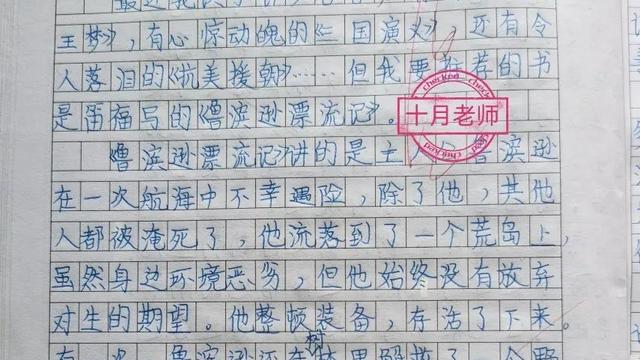 王梦》，有心惊动魄的《三国演义》，还有令
人落泪的《抗美援朝》……但我要推荐的书
是笛福写的《鲁滨逊漂流记》。
checked
十月老师
checked
《鲁滨逊漂流记》讲的是主人公鲁滨逊
在一次航海中不幸遇险，除了他，其他
人都被淹死了，他流落到了一个荒岛上，
虽然身边环境恶劣，但他始终没有放弃
对生的期望。他整顿装备，存活了下来。
有一次，鲁滨逊还在树林里解救了一个野